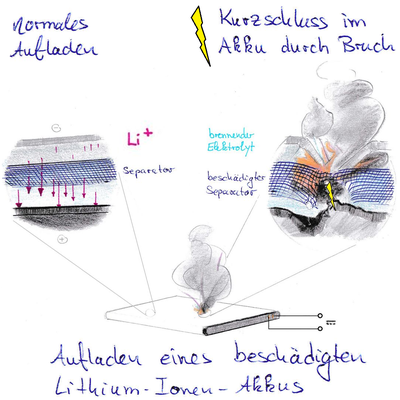 normales
Aufladen
Kurzschluss im
Akku durch Bruch
Li+
Separator
brennender
Elektrolyt
beschädigter
Separator
Aufladen eines beschädigten
Lithium-Ionen-Akkus